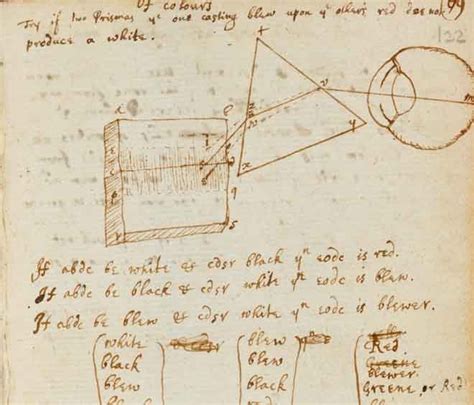 Of colours
99
Try if two Prismas yᵉ one casting blew upon yᵉ others red doe not
produce a white.
122
If abdc be white & cdsr black yⁿ eodc is red.
If abdc be black & cdsr white yⁿ eodc is blew.
If abdc be blew & cdsr white yⁿ eodc is blewer.
white blew Red.
black blew Greene
blew black blewer
black black Greene or Red